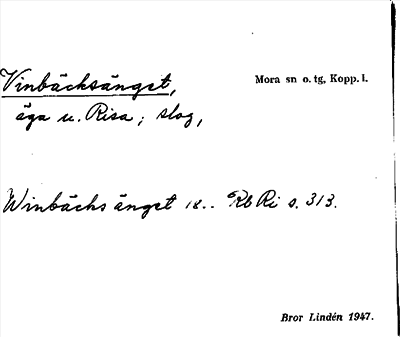 Vinbäcksänget, Mora sn o. tg, Kopp. l.
äga u. Risa; slog,
Winbächs änget 18.. Rb Ri s. 313.
Bror Lindén 1947.